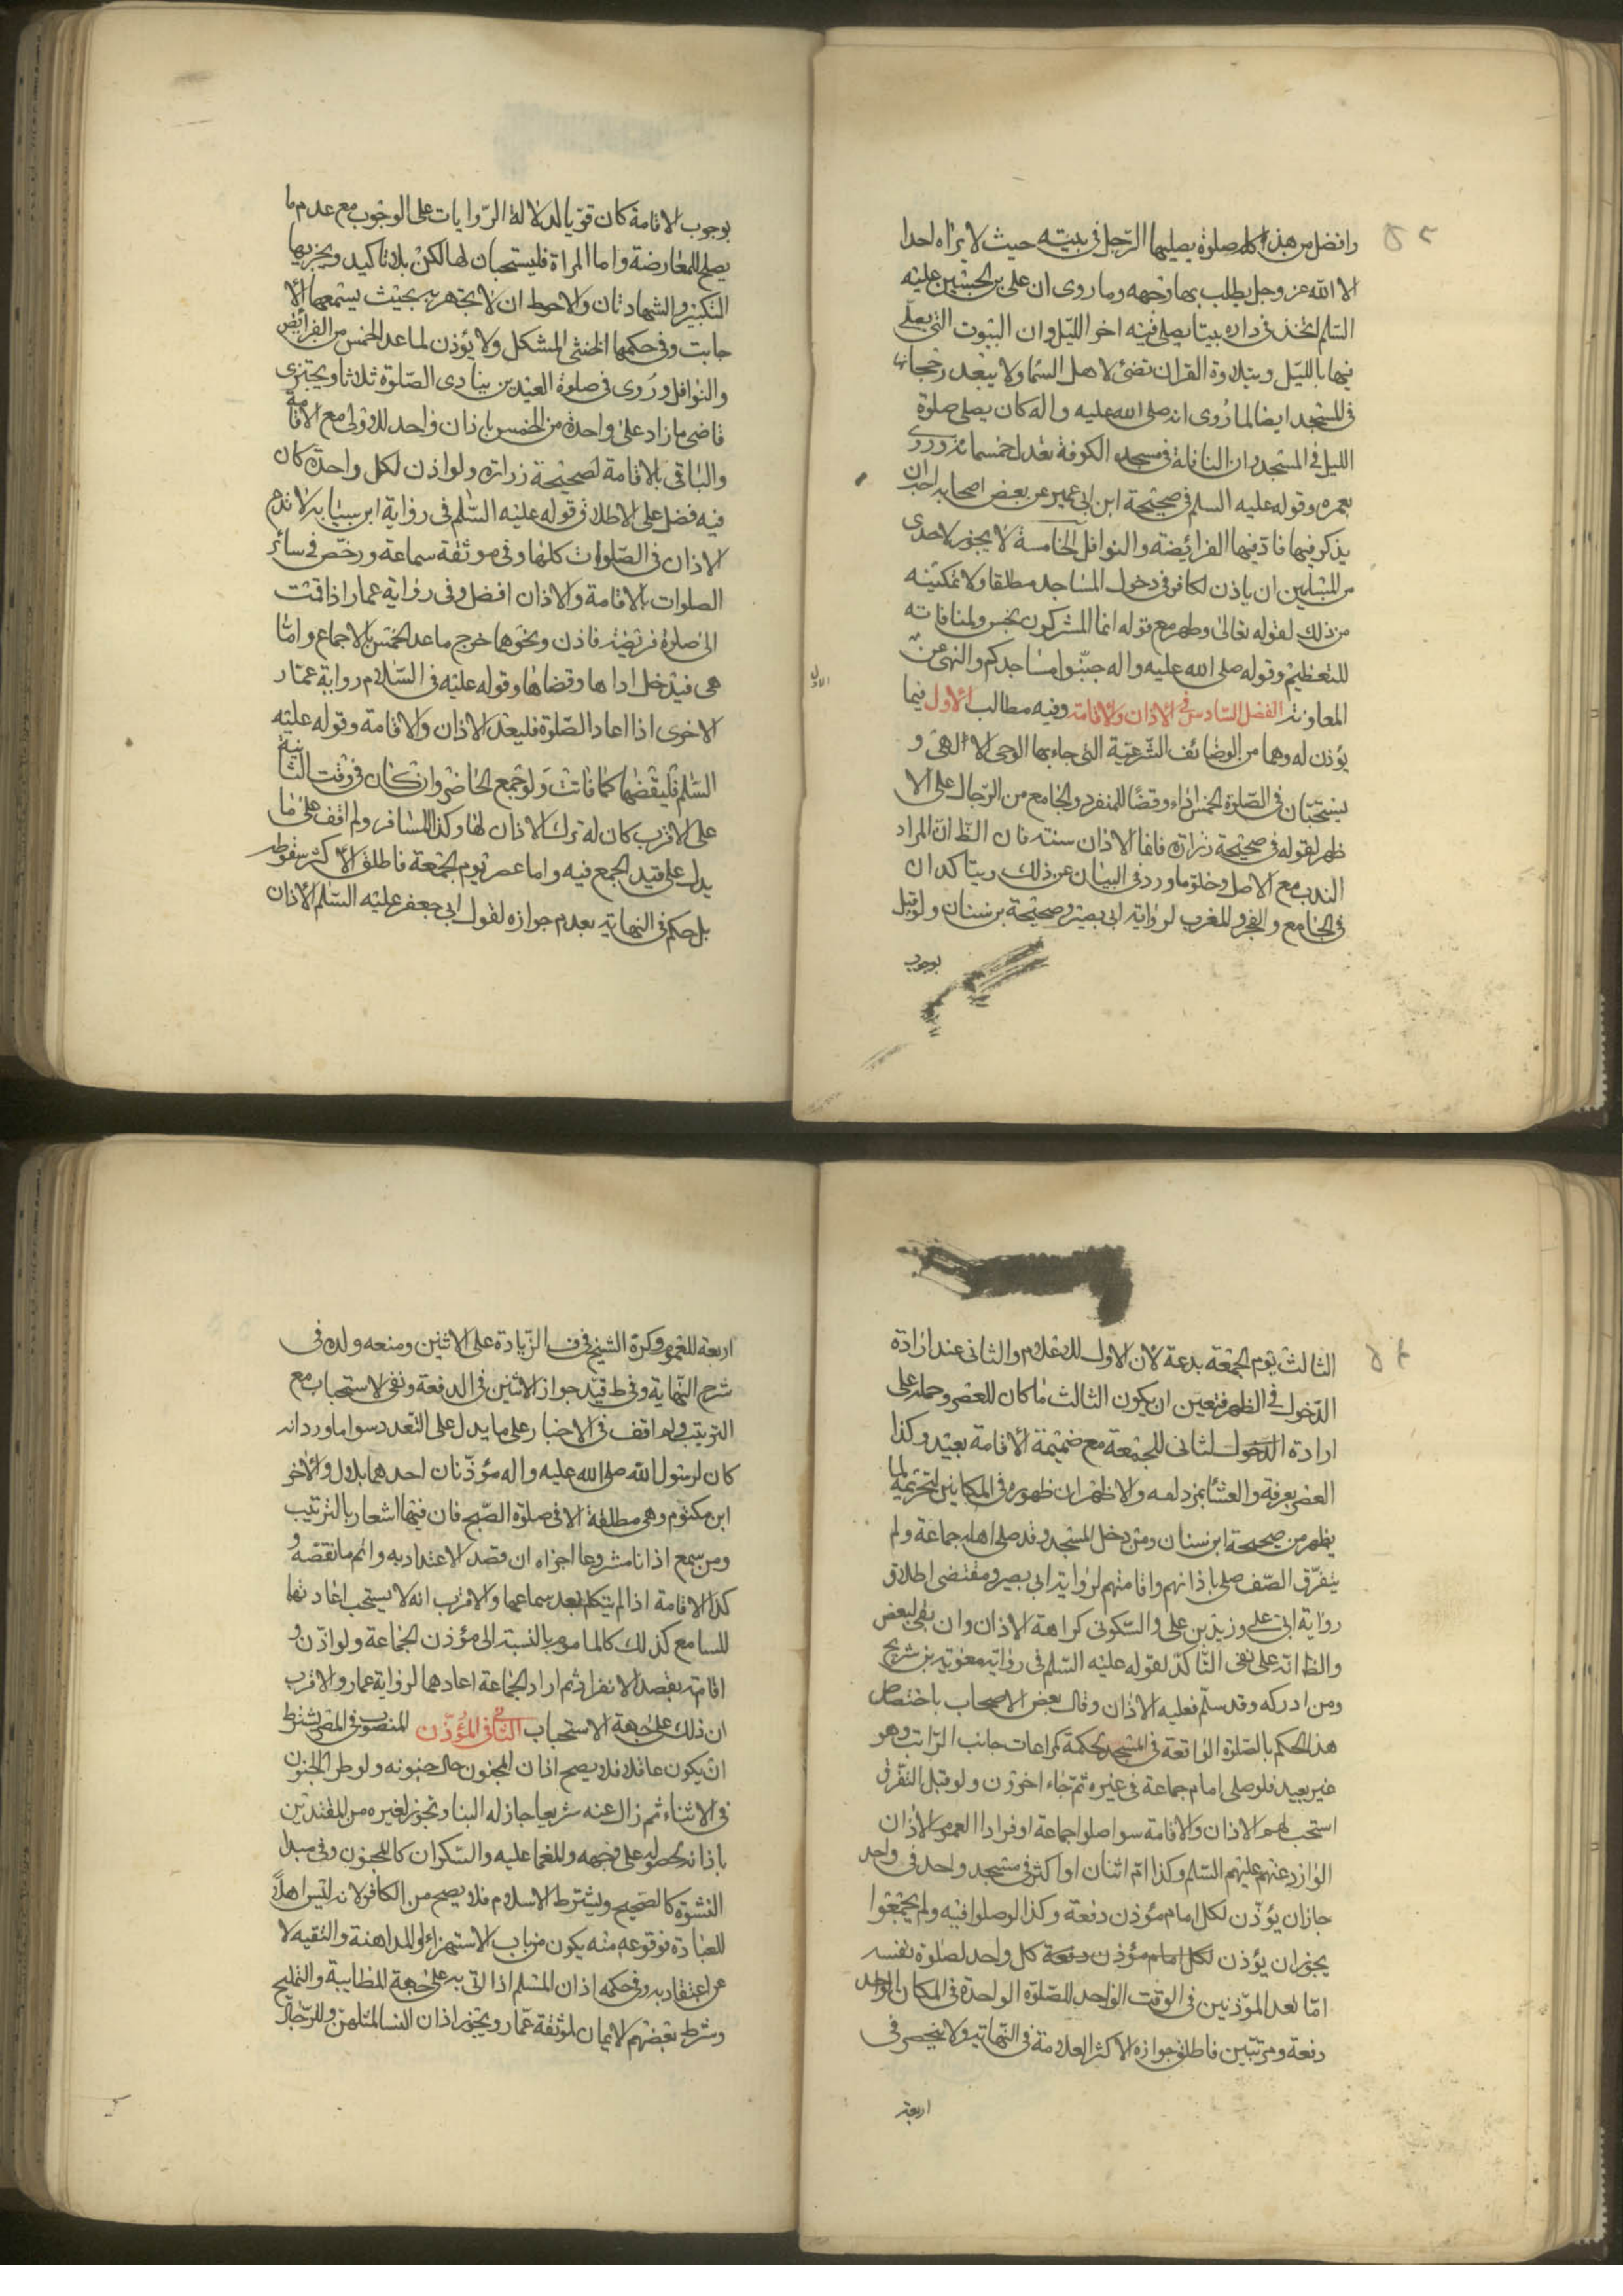 وافضل من هذا كله صلوة يصليها الرجل فى بيته حيث لا يراه احدا
الا الله عز وجل يطلب بها وجهه وما روى ان على بن الحسين عليه
السلم اتخذ فى داره بيتا يصلى فيه اخر الليل وان البيوت التى يصلى
فيها بالليل وبتلاوة القران تضئ لاهل السما ولا يبعد رجحانها
فى المسجد ايضا لما روى انه صلى الله عليه واله كان يصلى صلوة
الليل فى المسجد وان النافلة فى مسجد الكوفة تعدل خمسمائة وروى
بعمره وقوله عليه السلم فى صحيحة ابن ابى عمير عن بعض اصحابه احب ان
يذكر فيها فادّ فيها الفرايضه والنوافل الخامسة لا يجوز لاحدى
من المسلمين ان ياذن لكافر فى دخول المساجد مطلقا ولا تمكينه
من ذلك لقوله تعالى وطهر مع قوله انما المشركون نجس ولمنافاته
للتعظيم وقوله صلى الله عليه واله جنّبوا مساجدكم والنهى عن
المعاونة الفصل السادس فى الاذان والاقامة وفيه مطالب الاول فيما
يؤذن له وهما من الوضائف الشرعية التى جاء بها الوحى الالهى و
يستحبّان فى الصّلوة الخمس اداء وقضاً للمنفرد والجامع من الرّجال على الا
ظهر لقوله فى صحيحة زرارة فانما الاذان سنته فان الظ ان المراد
الندب مع الاصل وخلوّ ما ورد فى البيان عن ذلك ويتاكد ان
فى الجامع والفجر والمغرب لرواية ابى بصير وصحيحة بن سنان ولو قيل
بوجوب
بوجوب الاقامة كان قويا لدلالة الرّوايات على الوجوب مع عدم ما
يصلح للمعارضة واما المراة فليستحبان لها لكن بلا تاكيد ويجزيها
التكبير والشهادتان والاحوط ان لا تجهر به بحيث يسمعها الا
جانب وفى حكمها الخنثى المشكل ولا يؤذن لما عدا الخمس من الفرايض
والنوافل وروى فى صلوة العيدين ينادى الصّلوة ثلاثا ويجتزى
قاضى ما زاد على واحدة من الخمس باذان واحد للاولى مع الاقامة
والباقى بالاقامة لصحيحة زرارة ولو اذن لكل واحدة كان
فيه فضل على الاطلاق وقوله عليه السّلم فى رواية ابن سيابه لا تدع
الاذان فى الصّلوات كلها وفى موثقة سماعة ورخّص فى سائر
الصلوات بالاقامة والاذان افضل وفى رواية عمار اذا قمت
الى صلوة فريضة فاذن ونحوهما خرج ما عدا الخمس بالاجماع وامّا
هى فيدخل اداها وقضاها وقوله عليه فى السّلام رواية عمّار
الاخرى اذا اعاد الصّلوة فليعد الاذان والاقامة وقوله عليه
السّلم فليقضها كما فاتت ولو جمع الحاضر وان كان فى وقت الثانية
على الاقرب كان له ترك الاذان لها وكذا المسافر ولم اقف على ما
يدل على قيد الجمع فيه واما عصر يوم الجمعة فاطلق الاكثر سقوطه
بل حكم فى النهاية بعدم جوازه لقول ابى جعفر عليه السّلم الأذان
الثالث يوم الجمعة بدعة لان الاول للاعلام والثانى عند ارادة
الدّخول فى الظهر فتعين ان يكون الثالث ما كان للعصر وحمله على
ارادة الدخول الثانى للجمعة مع ضميمة الاقامة بعيد وكذا
العصر بعرفة والعشاء بمزدلفه والاظهر ان ظهوره فى المكانين لتحريمه لما
يظهر من صحيحة ابن سنان ومن دخل المسجد وقد صلى اهله جماعة ولم
يتفرّق الصّف صلى باذانهم واقامتهم لرواية ابى بصير ومقتضى اطلاق
رواية ابى على وزيد بن على والسّكونى كراهة الاذان وان بقى لبعض
والظ انه على نفى التاكّد لقوله عليه السّلم فى رواية معوية بن شريح
ومن ادركه وقد سلّم فعليه الاذان وقال بعض الاصحاب باختصاص
هذا الحكم بالصّلوة الواقعة فى المسجد لحكمة كمراعات جانب الرّاتب وهو
غير بعيد فلو صلى امام جماعة فى غيره ثم جاء اخرون ولو قبل التفرق
استحب لهم الاذان والاقامة سوا صلوا جماعة او فرادا العموم الاذان
الوارد عنهم عليهم السّلم وكذا امّ اثنان او اكثر فى مسجد واحد فى واحد
جاز ان يؤذّن لكل امام مؤذن دفعة وكذا لو صلوا فيه ولم يجتمعوا
يجوز ان يؤذن لكل امام مؤذن دفعة كل واحد لصلوة نفسه
امّا تعد المؤذنين فى الوقت الواحد للصّلوة الواحدة فى المكان الواحد
دفعة ومرتبين فاطلق جوازه الاكثر العلامة فى النّهاية ولا ينحصر فى
اربعة
اربعة للعموم وكره الشيخ فى ف الزّيادة على الاثنين ومنعه ولده فى
شرح النّهاية وفى ط قيّد جواز الاثنين فى الدفعة ونفى الاستحباب مع
الترتيب ولم اقف فى الاخبار على ما يدل على التعدد سوا ما ورد انه
كان لرسول الله صلى الله عليه واله مؤذّنان احدهما بلال والاخر
ابن مكتوم وهى مطلقة الا فى صلوة الصّبح فان فيها اشعار بالترتيب
ومن سمع اذانا مشروعا اجزاه ان قصد الاعتداد به واتم ما نقصه و
كذا الاقامة اذا لم يتكلم بعد سماعها والاقرب انه لا يستحب اعادتها
للسامع كذلك كالماموم بالنسبة الى مؤذن الجماعة ولو اذّن و
اقام بقصد الانفراد ثم اراد الجماعة اعادهما لرواية عمار والاقرب
ان ذلك على جهة الاستحباب الثانى فى المؤذّن المنصوب فى المصر يشترط
ان يكون عاقلا فلا يصح اذان المجنون حال جنونه ولو طرا الجنون
فى الاثناء ثم زال عنه سريعا جاز له البنا ويجوز لغيره من المقتدين
باذانه لحصوله على وجهه والمغما عليه والسّكران كالمجنون وفى مبدا
النشوة كالصّحيح ويشترط الاسلام فلا يصح من الكافر لانه ليس اهلاً
للعبادة فوقوعه منه يكون من باب الاستهزاء او المداهنة والتقيه لا
عن اعتقاد به وفى حكمه اذان المسلم اذا اتى به على جهة المطايبة والتمليح
وشرط بعضهم الايمان لموثقة عمّار ويجوز اذان النسا لمثلهن وللرّجال